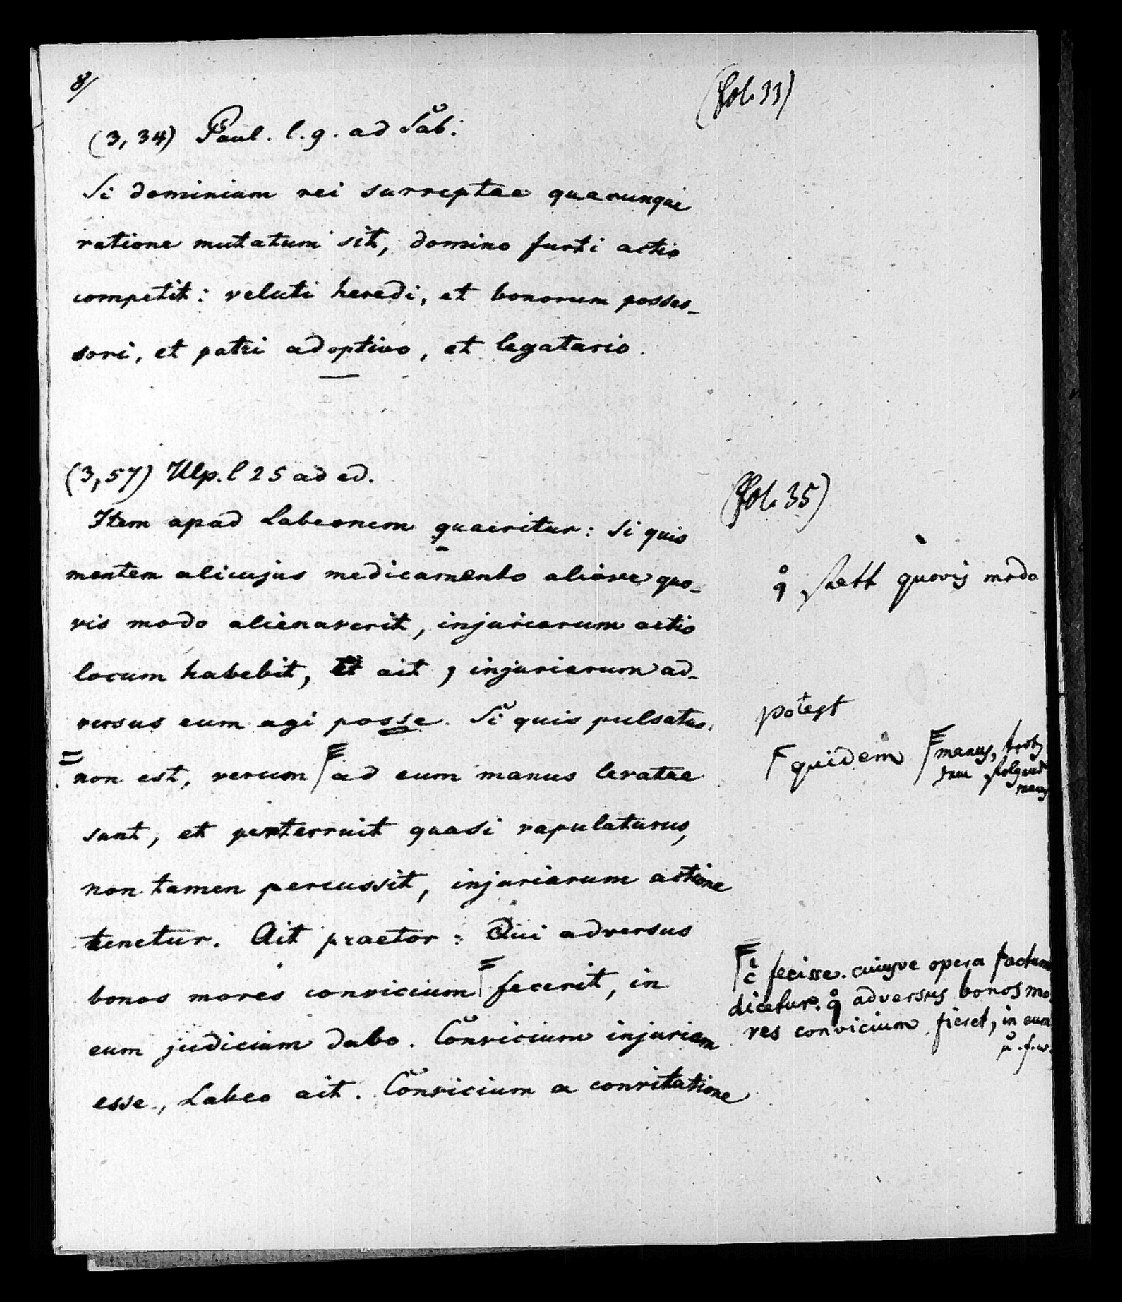 8/
(fol. 33)
(3, 34) Paul. l. 9. ad Sab.
Si dominium rei surreptae quacunque
ratione mutatum sit, domino furti actio
competit: veluti heredi, et bonorum posses-
sori, et patri adoptivo, et legatario.
(3, 57) Ulp. l 25 ad ed.
(fol. 35)
Item apud Labeonem quaeritur: Si quis
mentem alicujus medicamento aliove quo-
vis modo alienaverit, injuriarum actio
locum habebit, et ait, injuriarum ad-
versus eum agi posse. Si quis pulsatus
non est, verum ad eum manus levatae
sunt, et perterruit quasi vapulaturus,
non tamen percussit, injuriarum actione
tenetur. Ait praetor: Qui adversus
bonos mores convicium fecerit, in
eum judicium dabo. Convicium injuriam
esse, Labeo ait. Convicium a concitatione
statt quovis modo
potest
quidem manus,
fecisse. cuiusve opera factum
dicetur. adversus bonos mo-
res convicium fieret, in eum